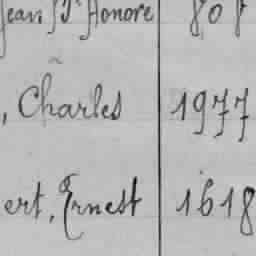 Jean St Honoré 808
, Charles 1977
ert, Ernest 1618